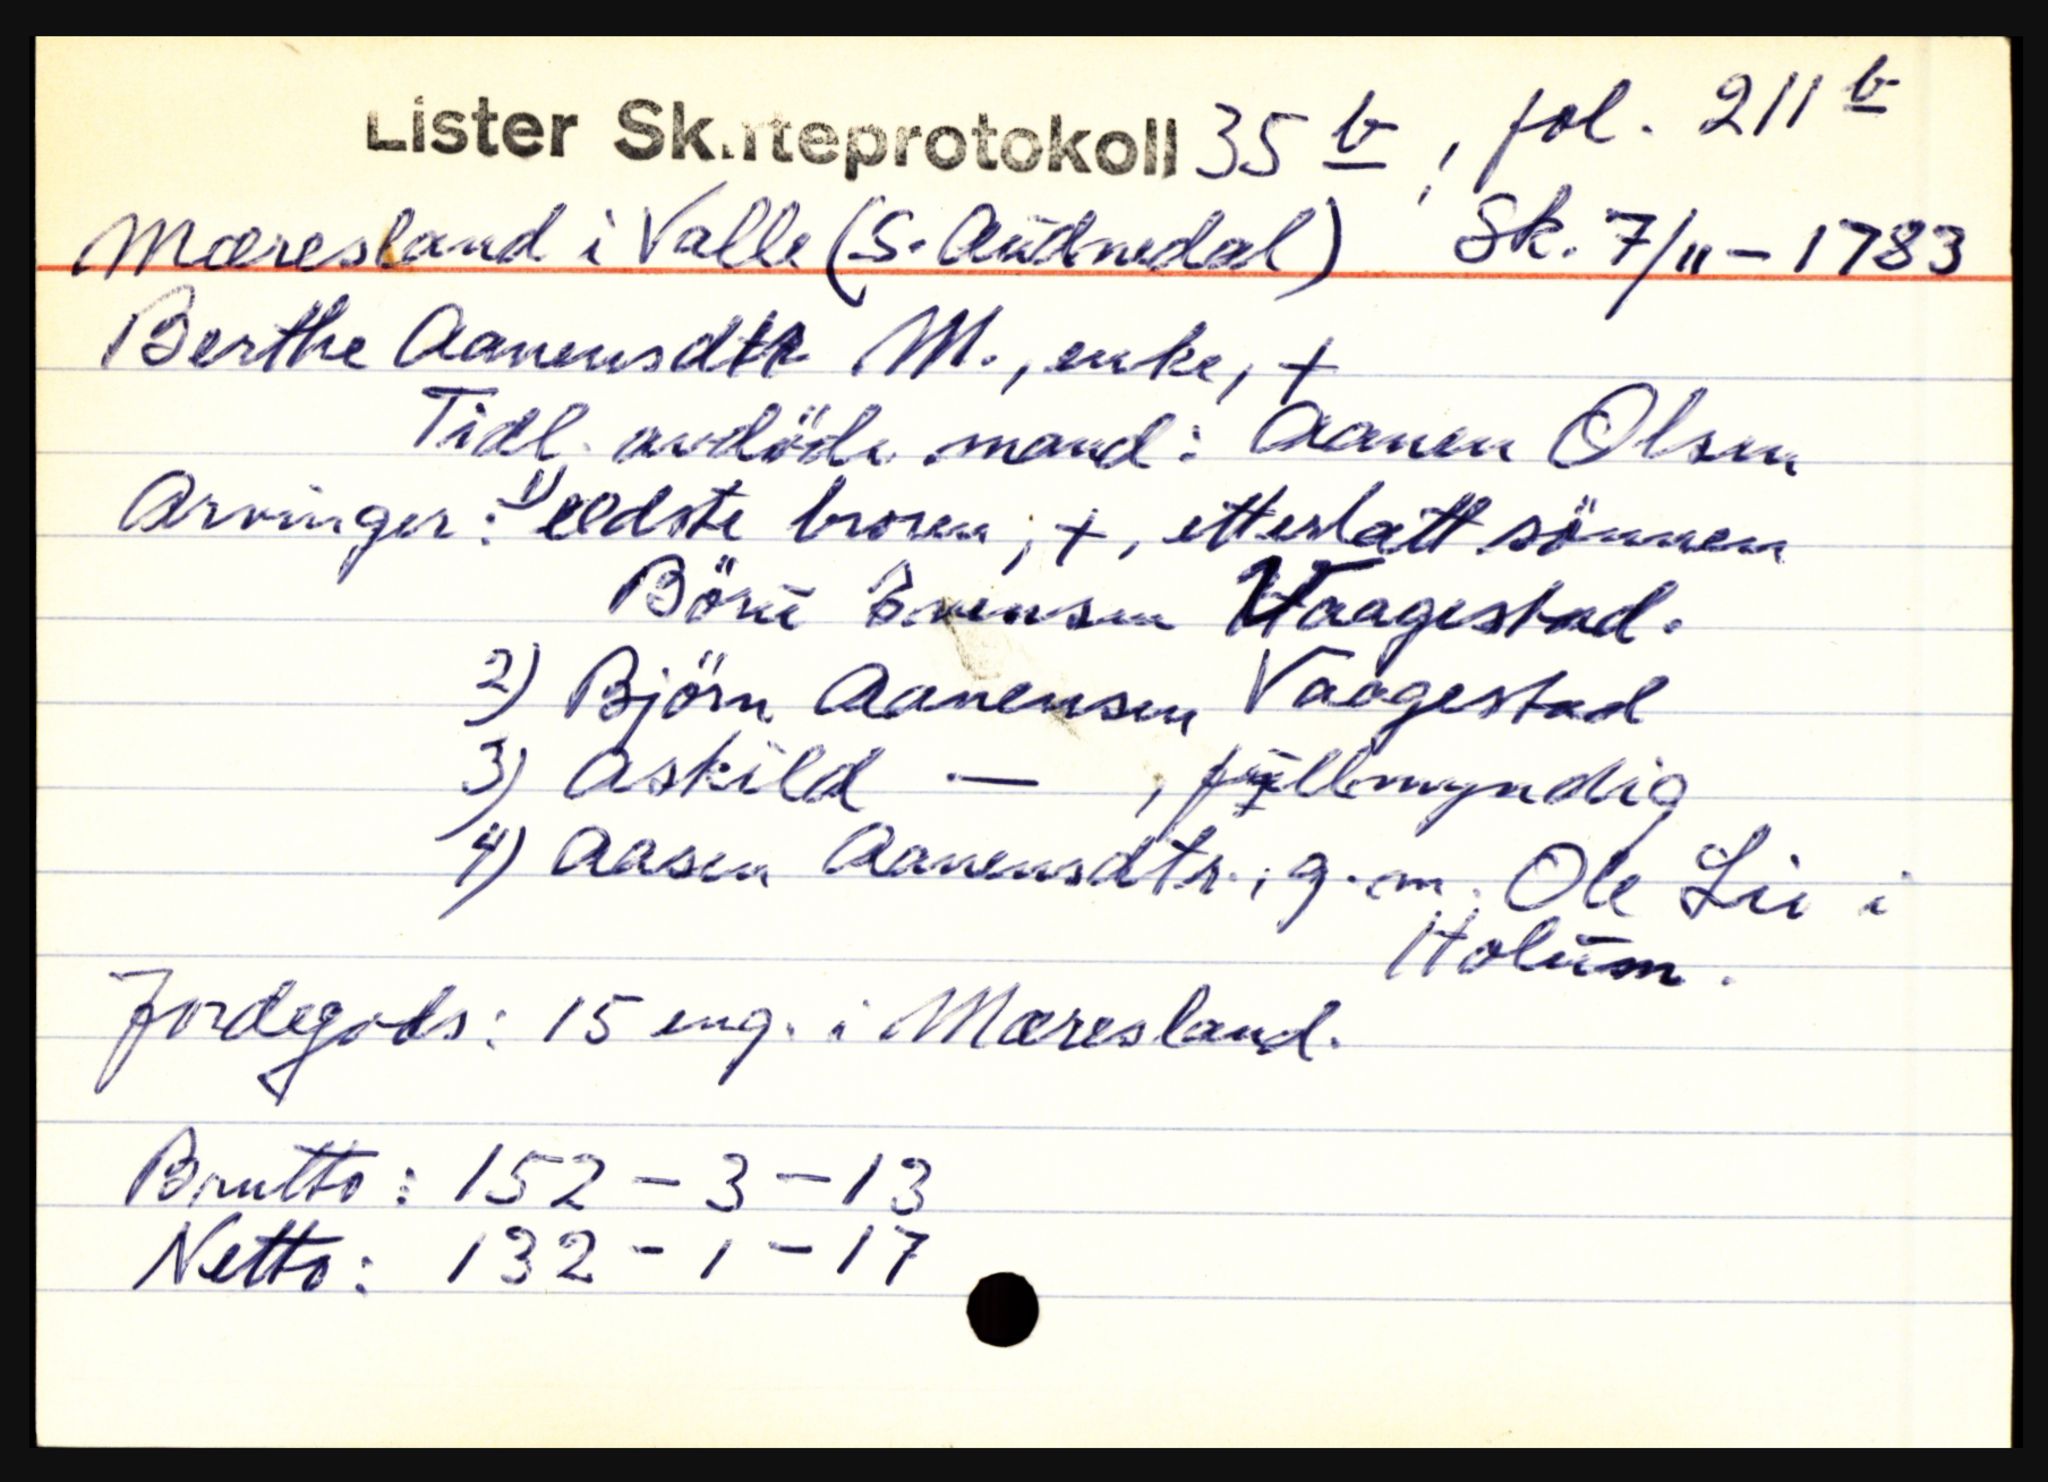 Lister Skifteprotokoll 35 b, fol. 211 b
Mæresland i Valle (S. Audnedal) Sk. 7/11 - 1783
Berthe Aanensdtr M., enke, +
Tidl. avdöde mand: Aanen Olsen
Arvinger: 1) eldste broren, +, etterlatt sönnen
Böru Evensen Vaagestad.
2) Björn Aanensen Vaagestad
3) Askild — , fullmyndig
4) Aasen Aanensdtr., g. m. Ole Lie i
Holum.
Jordegods: 15 eng. i Mæresland.
Brutto: 152 - 3 - 13
Netto: 132 - 1 - 17